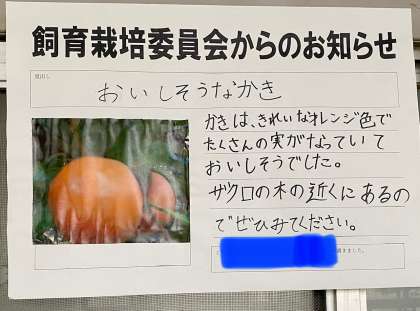 飼育栽培委員会からのお知らせ
見出し
おいしそうなかき
かきは、きれいなオレンジ色で
たくさんの実がなっていて
おいしそうでした。
ザクロの木の近くにあるの
でぜひみてください。
きました。